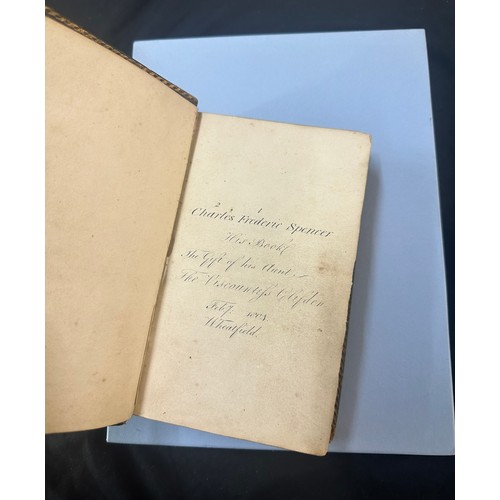 2 3 1
Charles Frederic Spencer
His Book
The Gift of his Aunt
The Viscountess Clifden
Feby.
Wheatfield.